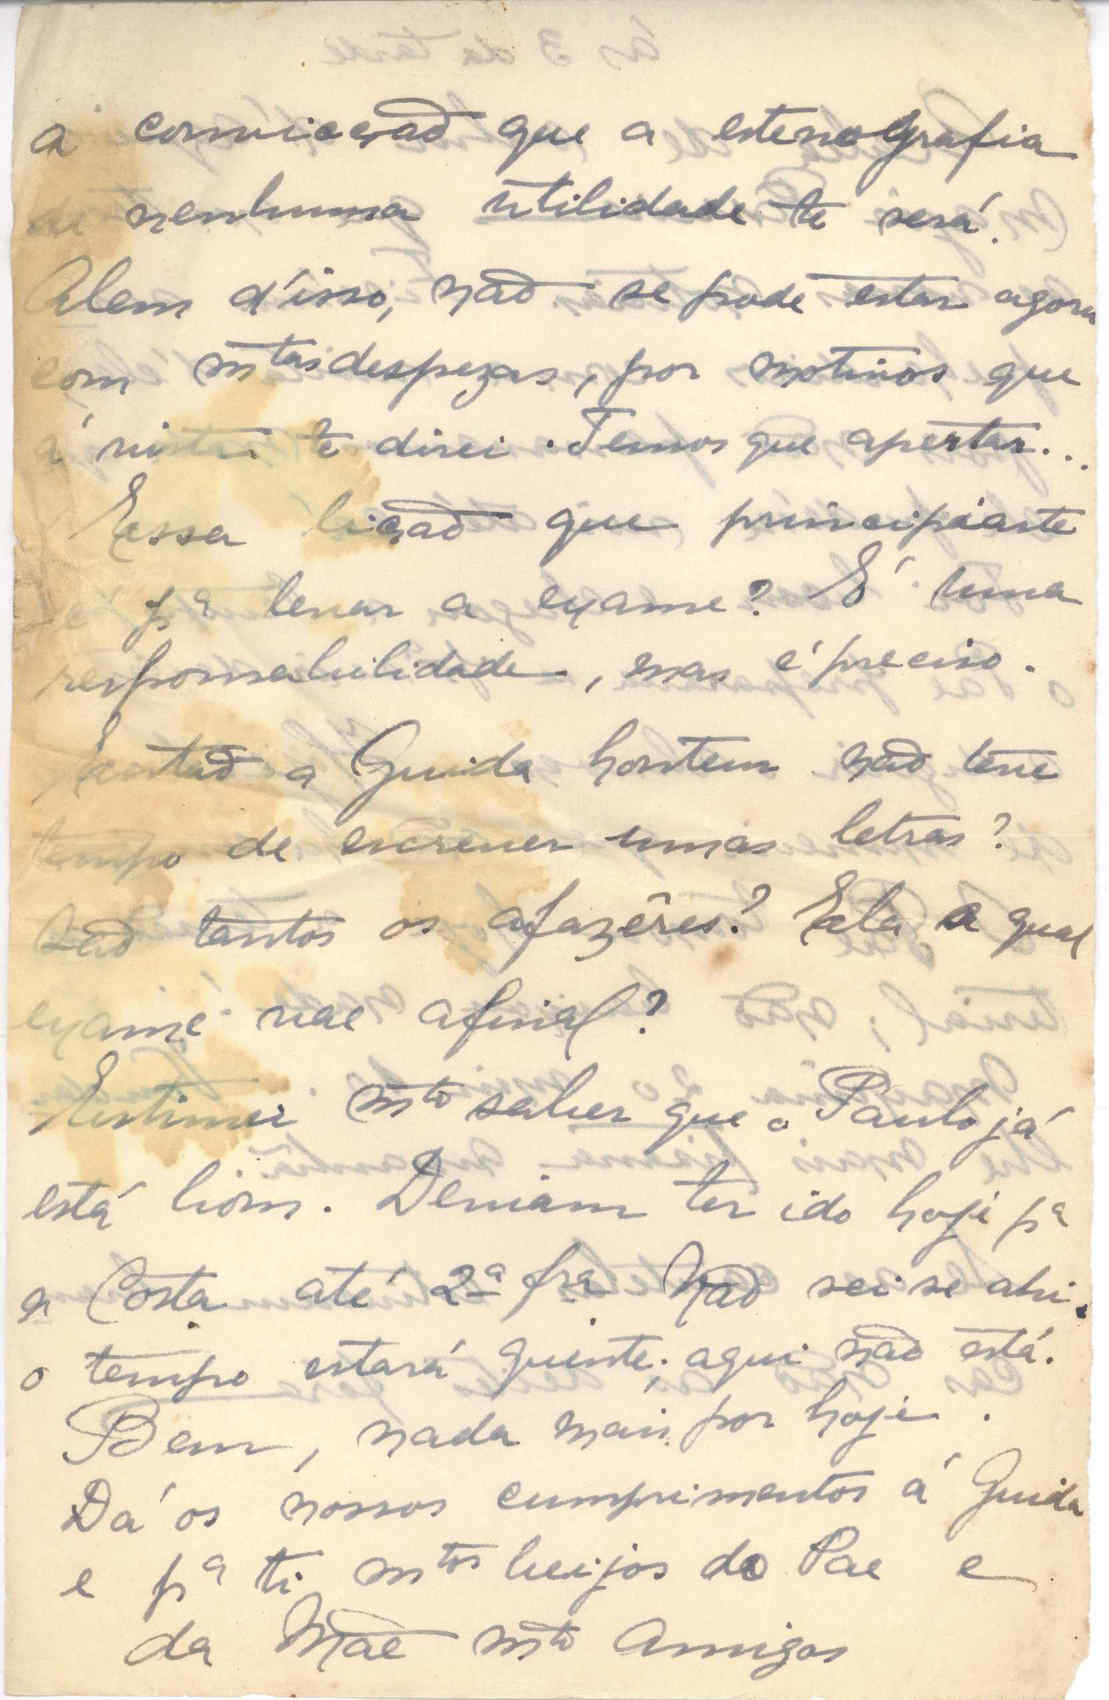 a convicção que a estenografia
de nenhuma utilidade te será.
Alem d'isso, não se pode estar agora
com mtas despezas, por motivos que
á vista te direi. Temos que apertar...
Essa lição que principiaste
é pa levar a exame? É uma
responsabilidade, mas é preciso.
Então a Guida hontem não teve
tempo de escrever umas letras?
São tantos os afazêres? Ela a qual
exame vae afinal?
Estimei mto saber que o Paulo já
está bom. Deviam ter ido hoje pa
a Costa até 2ª fra Não sei se ahi
o tempo estará quente; aqui não está.
Bem, nada mais por hoje.
Dá os nossos cumprimentos á Guida
e pa ti mtos beijos do Pae e
da Mãe mto Amigos